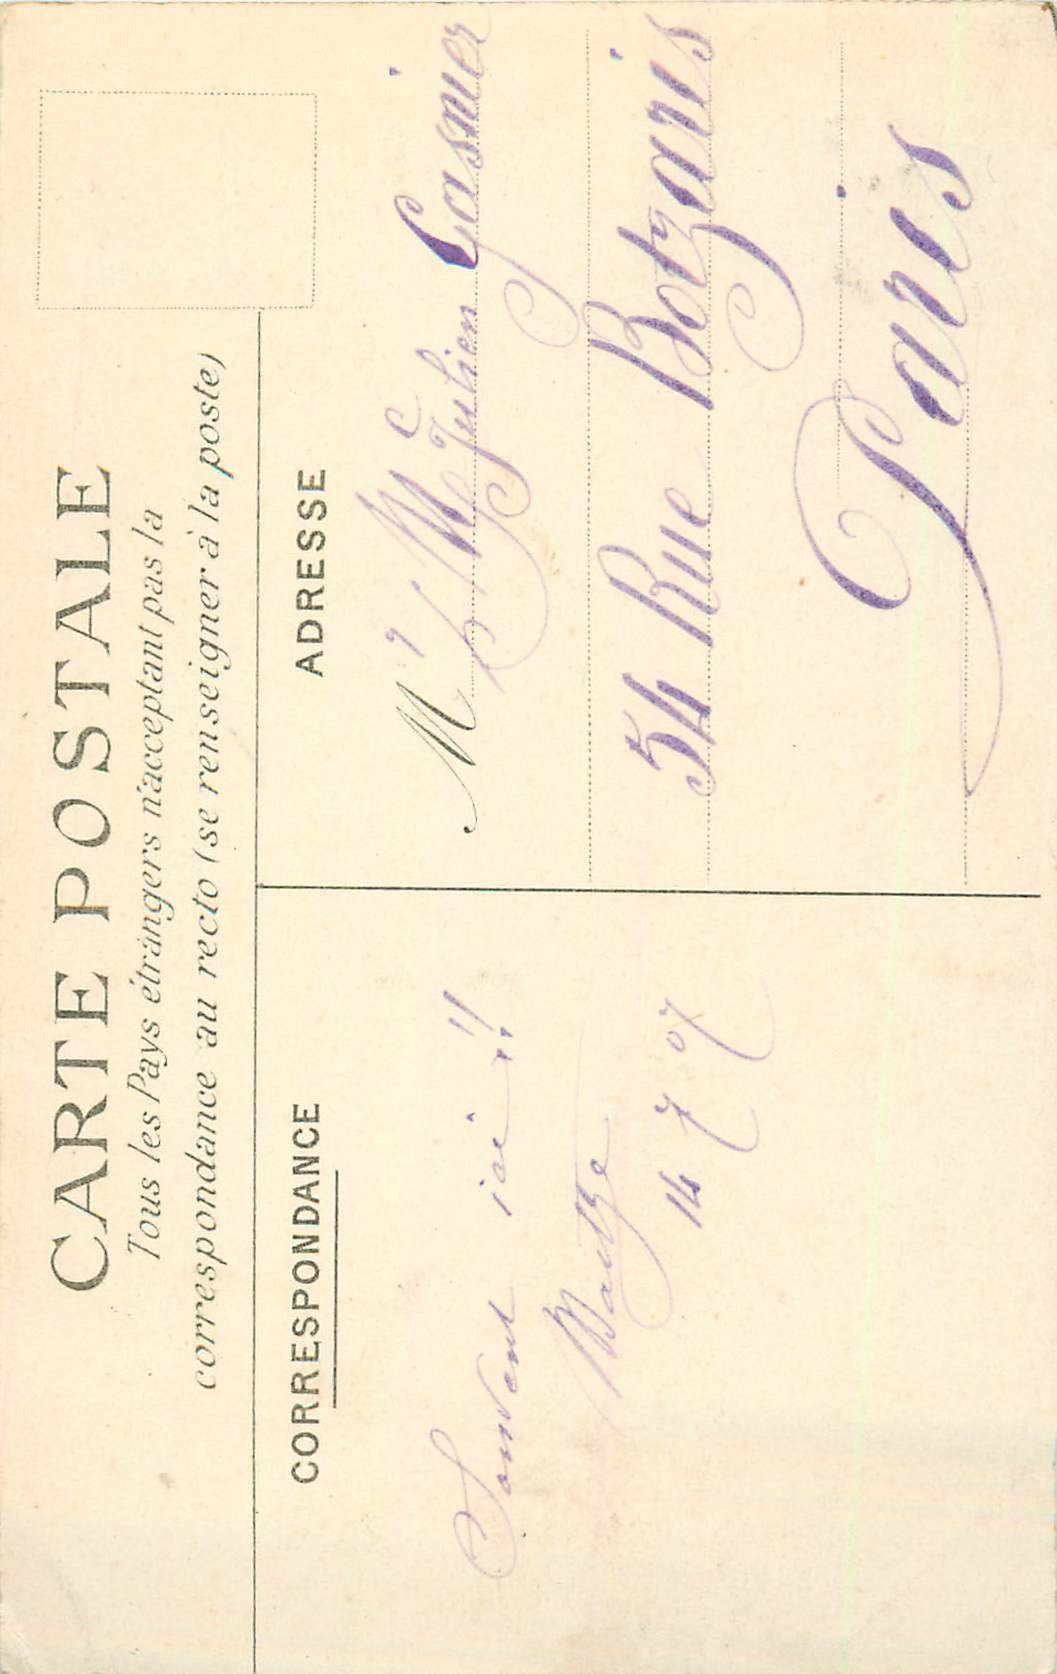 CARTE POSTALE
Tous les Pays étrangers n'acceptant pas la
correspondance au recto (se renseigner à la poste)
CORRESPONDANCE
Souvent ici!!
14 7 07
ADRESSE
Mr & Me Julien Gasnier
54 Rue Botzaris
Paris